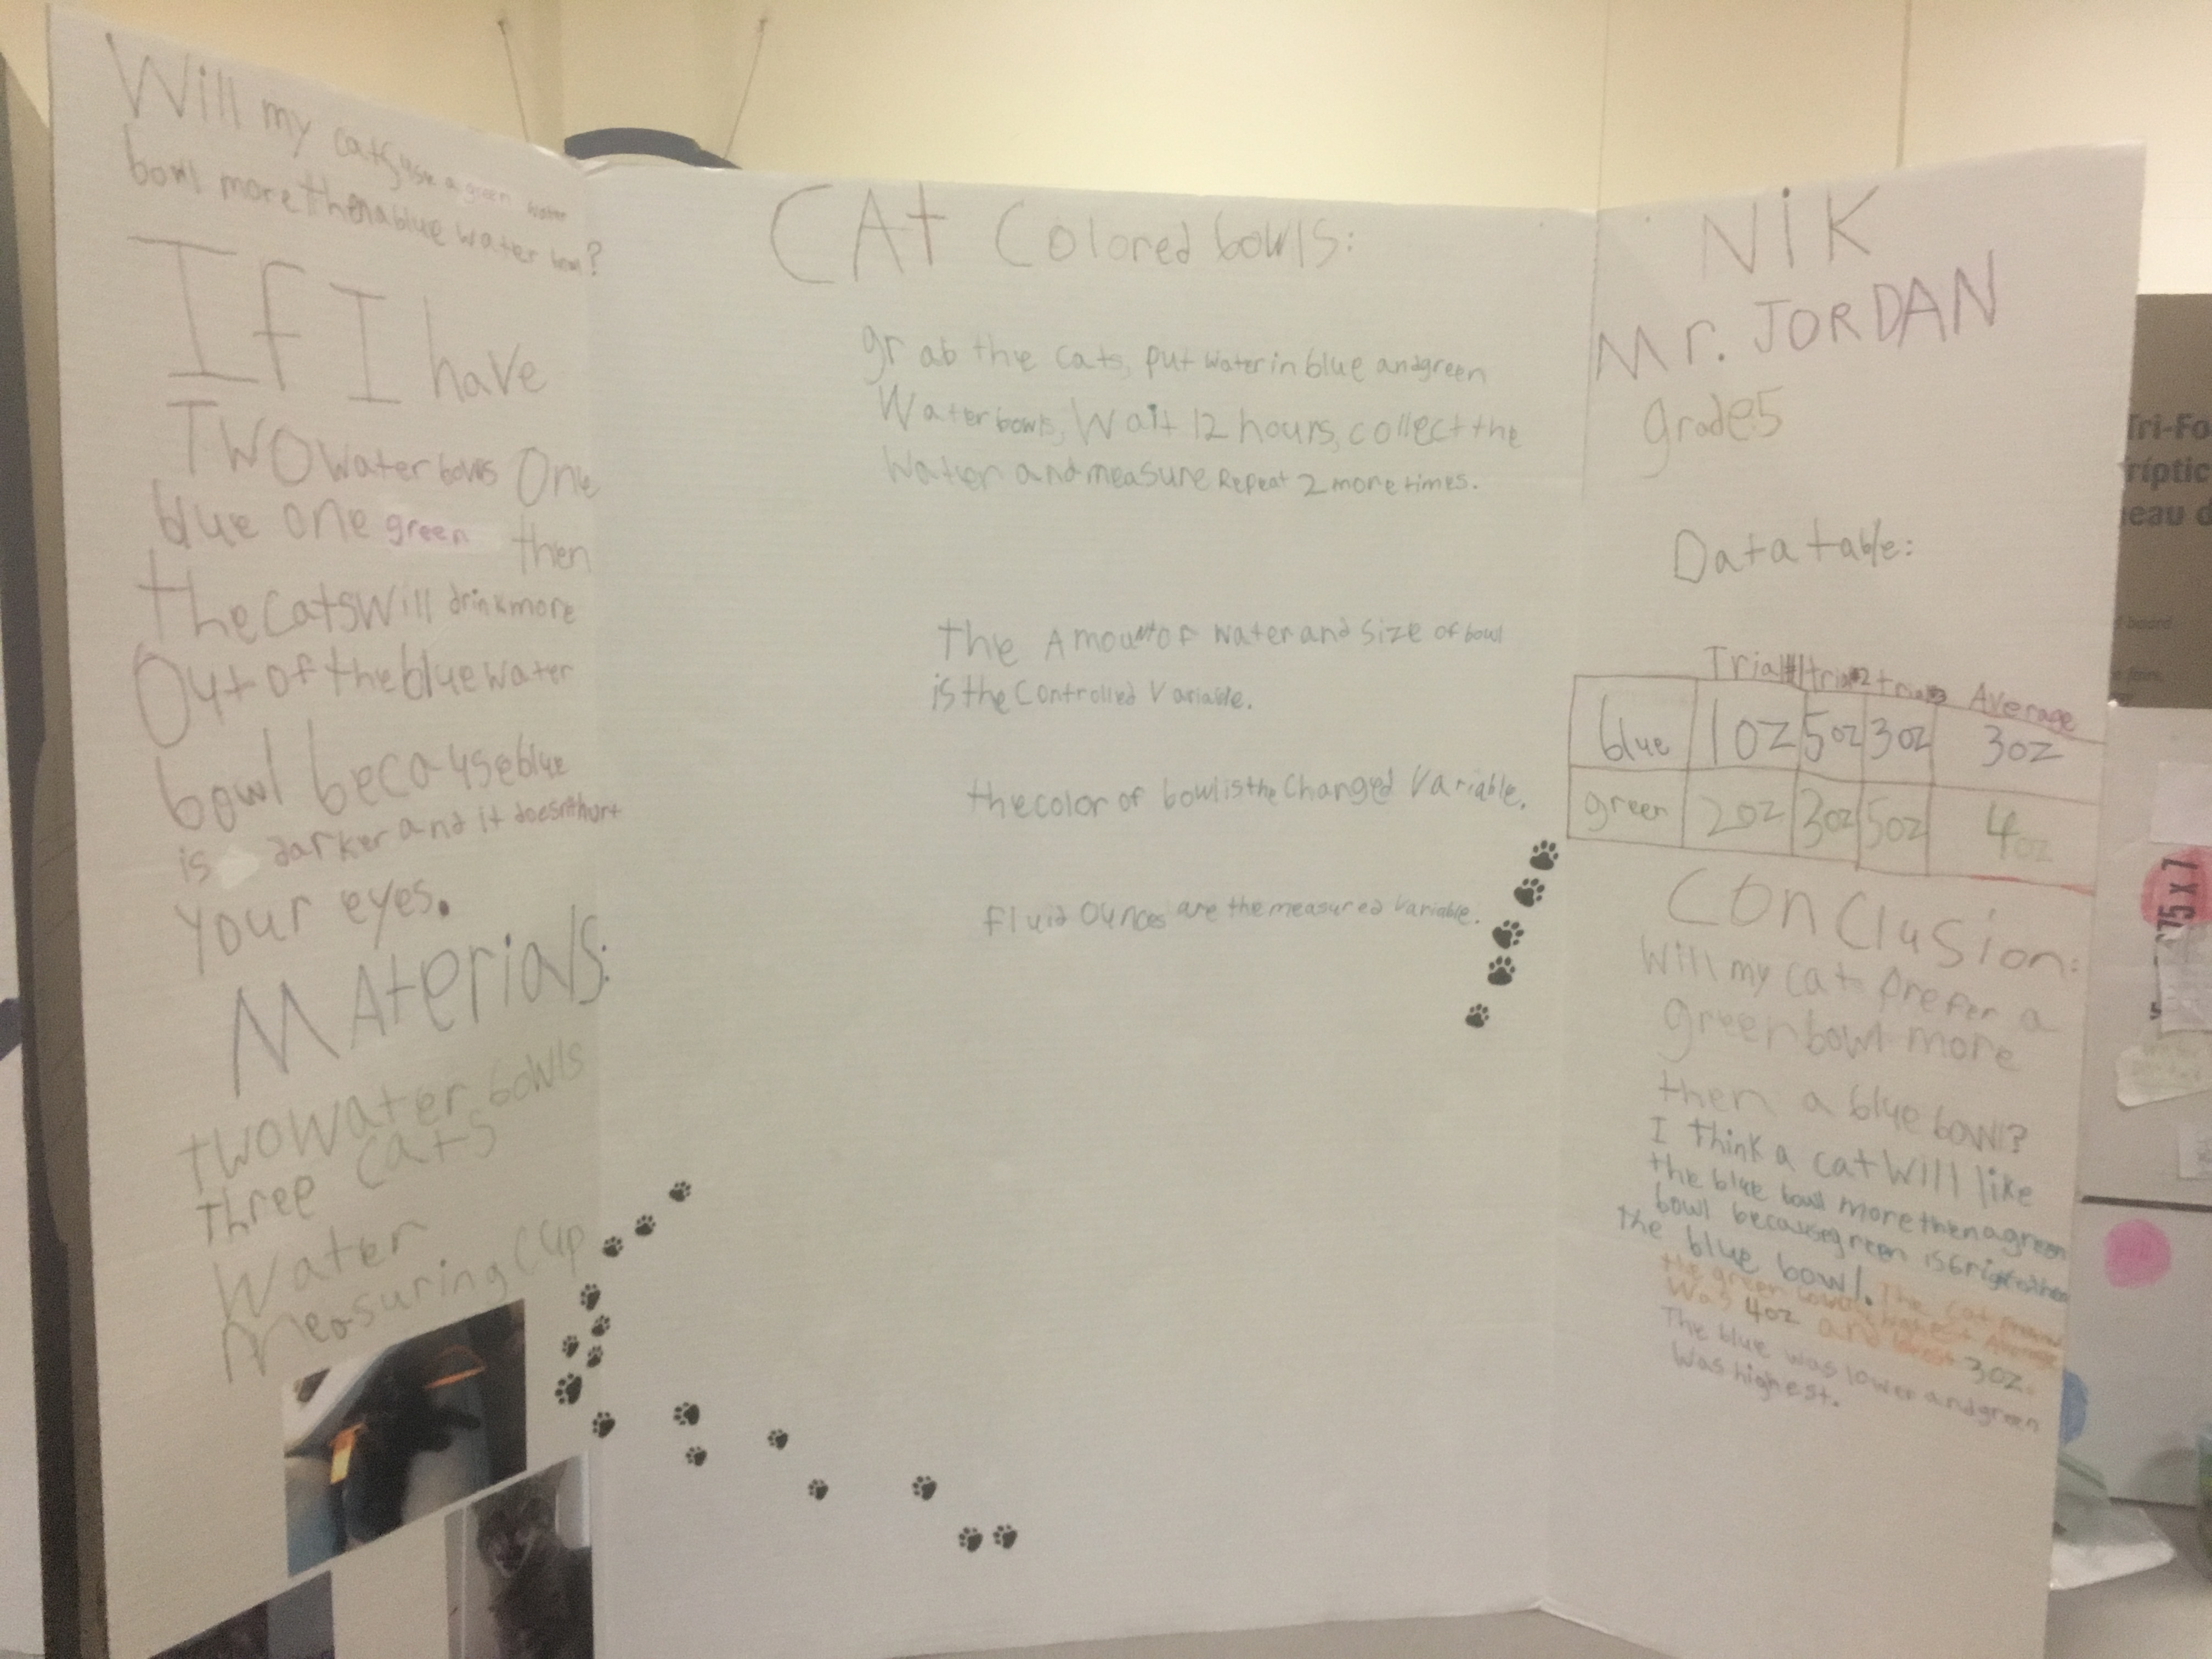 Will my cats use a green water
bowl more then a blue water bowl?
If I have
TWO water bowls One
blue one green then
the cats will drink more
Out of the blue water
bowl because blue
is darker and it doesn't hurt
your eyes.
MAterials:
two water bowls
three cats
Water
measuring cup
CAt Colored bowls:
grab the cats, put water in blue and green
Water bowls, Wait 12 hours, collect the
Water and measure Repeat 2 more times.
the Amount of water and size of bowl
is the Controlled Variable.
the color of bowl is the Changed Variable.
fluid Ounces are the measured Variable.
NiK
Mr. JORDAN
grade 5
Data table:
Trial #1 trial #2 trial #3 Average
blue 1oz 5oz 3oz 3oz
green 2oz 3oz 5oz 4oz
Conclusion:
Will my cat prefer a
green bowl more
then a blue bowl?
I think a cat will like
the blue bowl more then a green
bowl because green is brighter then
the blue bowl. The cat
the green highest Average
Was 4oz and lowest 3oz.
The blue was lower and green
Was highest.
Tri-Fo
ríptic
eau d
board
75 x 7